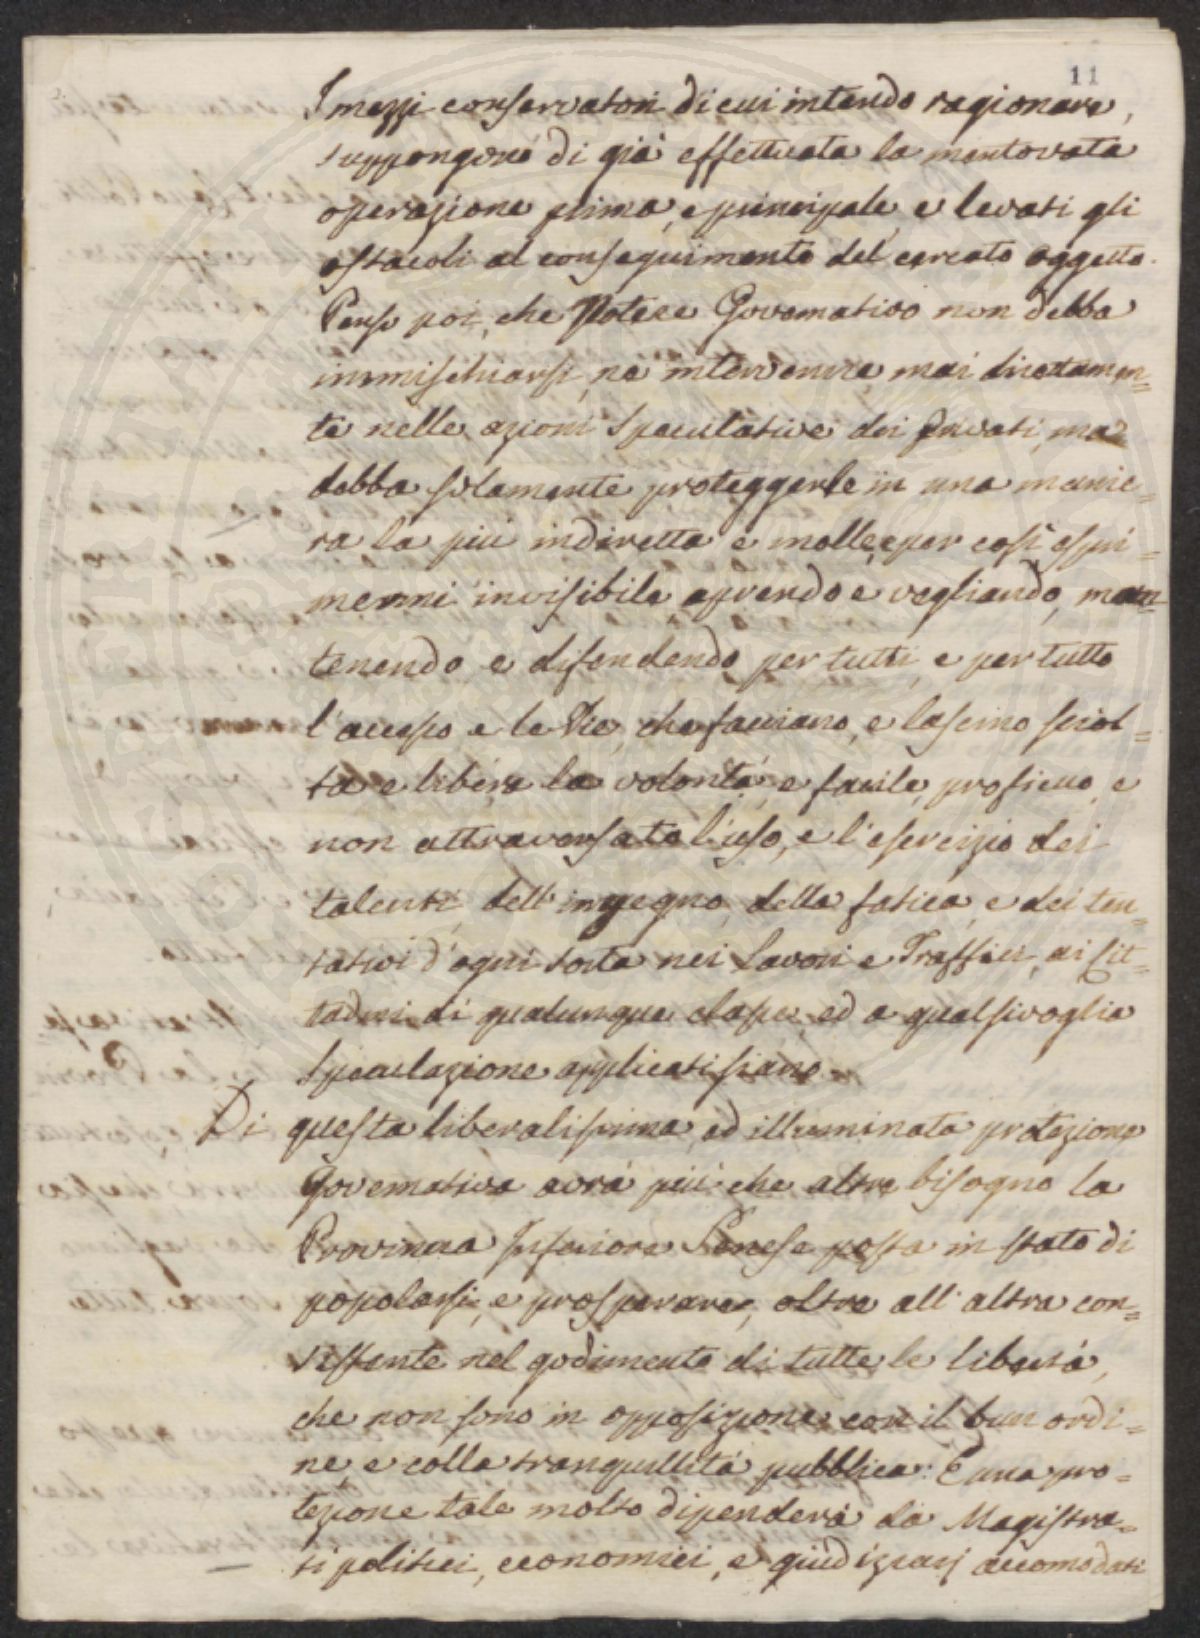 11
I mezzi conservatori di cui intendo ragionare,
suppongono di già effettuata la mentovata
operazione prima, e principale, e levati gli
ostacoli al conseguimento del cercato oggetto.
Penso poi, che Potere Governativo non debba
immischiarsi, ne intervenire mai direttamen=
te nelle azioni speculative dei Privati, ma
debba solamente proteggerle in una manie=
ra la più indiretta e molle, e per così espri=
mermi invisibile aprendo e vegliando, man=
tenendo e difendendo per tutti, e per tutto
l'accesso e le Vie, che facciano, e lascino sciol=
ta e libera la volontà, e facile, proficuo, e
non attraversato l'uso, e l'esercizio dei
talenti, dell'ingegno, della fatica, e dei ten=
tativi d'ogni sorta nei Lavori e Traffici, ai Cit=
tadini di qualunque classe ed a qualsivoglia
speculazione applicati siano.
Di questa liberalissima, ed illuminata protezione
Governativa avrà più che altre bisogno la
Provincia Inferiore Senese posta in stato di
popolarsi, e prosperare, oltre all'altra con=
sistente nel godimento di tutte le libertà,
che non sono in opposizione con il buon ordi=
ne, e colla tranquillità pubblica. E una pro=
tezione tale molto dipenderà da Magistra=
ti politici, economici, e giudiziarj accomodati